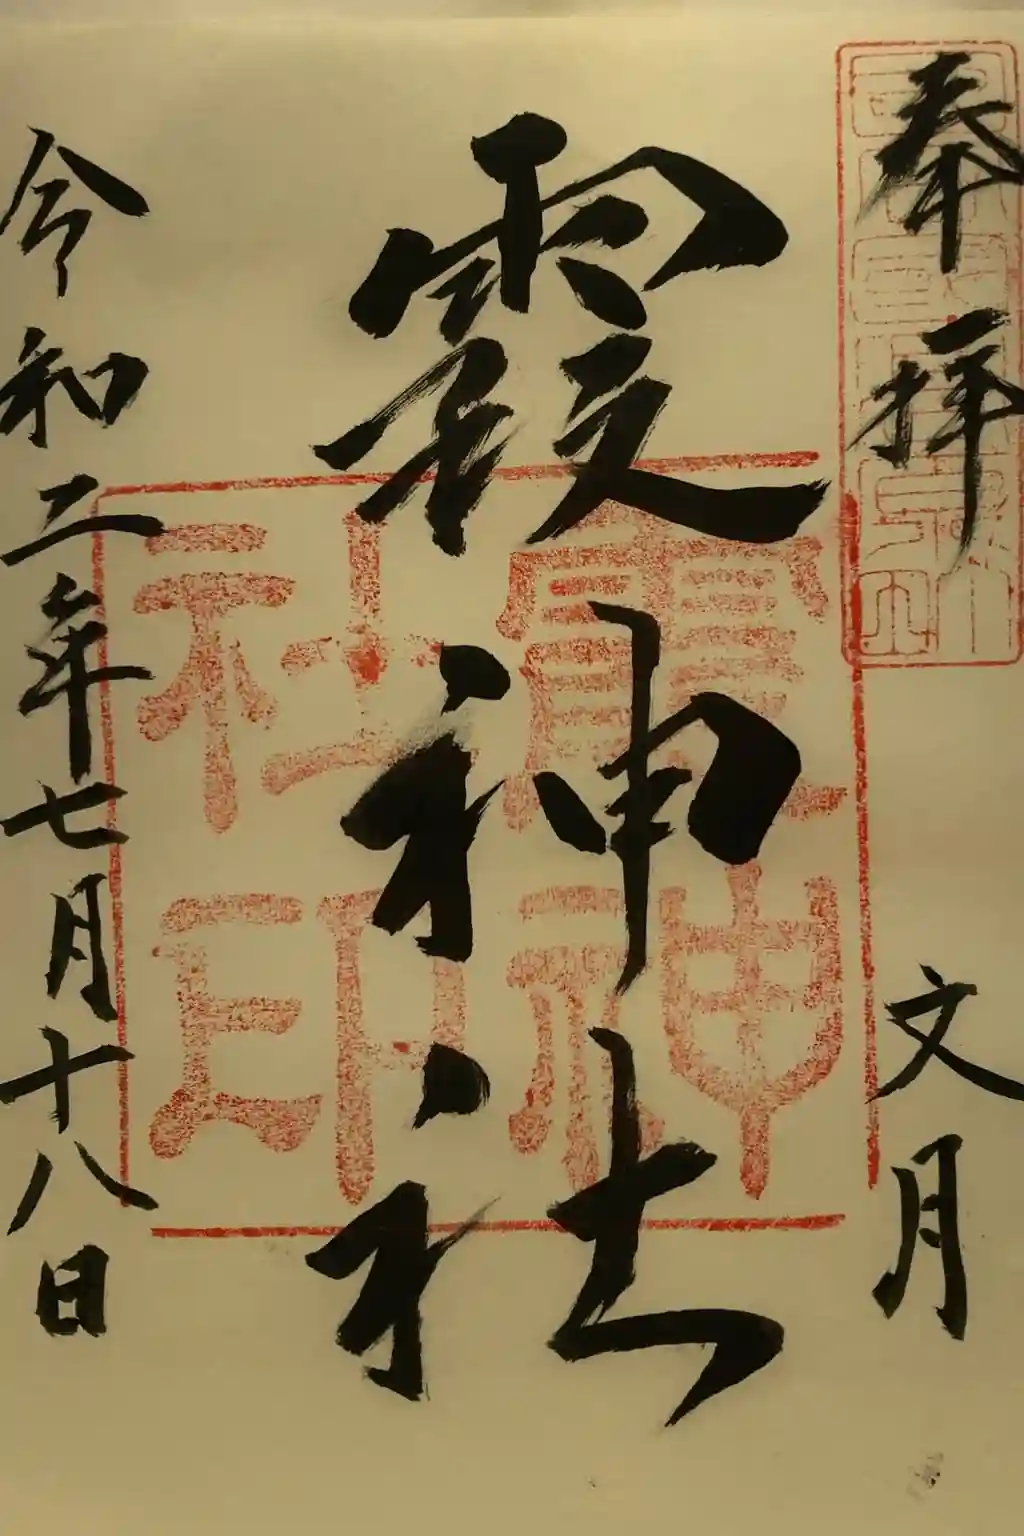 奉拝
文月
霞神社
霞神社印
令和二年七月十八日